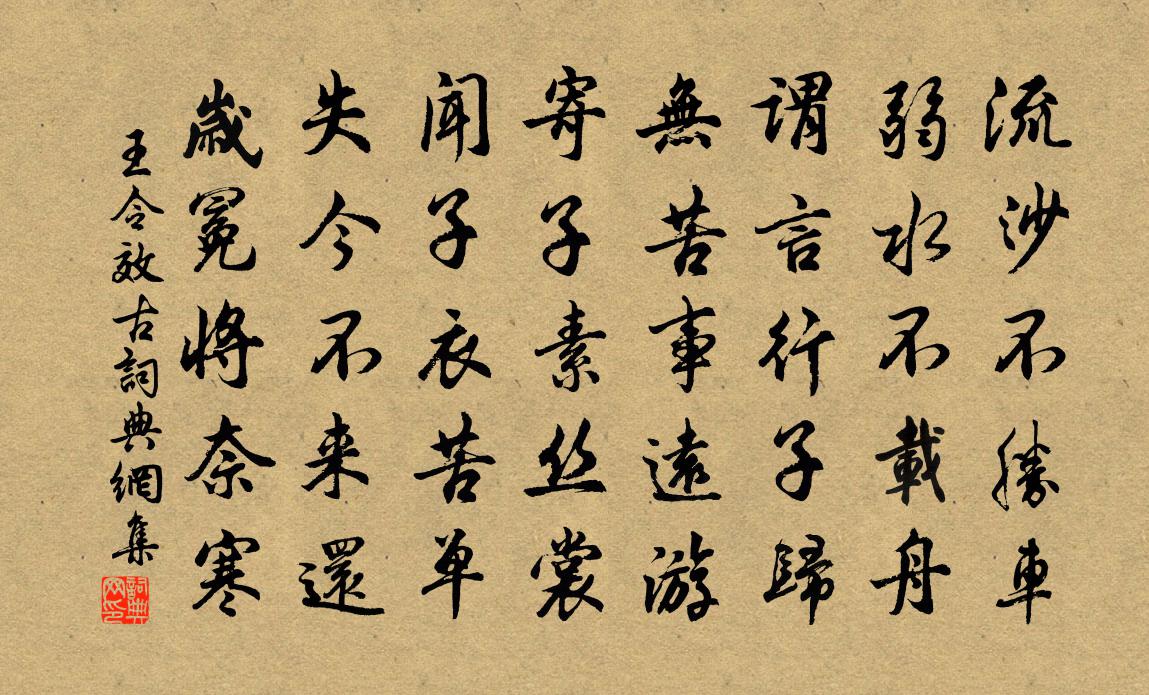 流沙不勝車
弱水不載舟
謂言行子歸
無苦事遠游
寄子素丝裳
聞子衣苦单
失今不来還
歲冕將奈寒
王令效古詞典網集
詞典网印